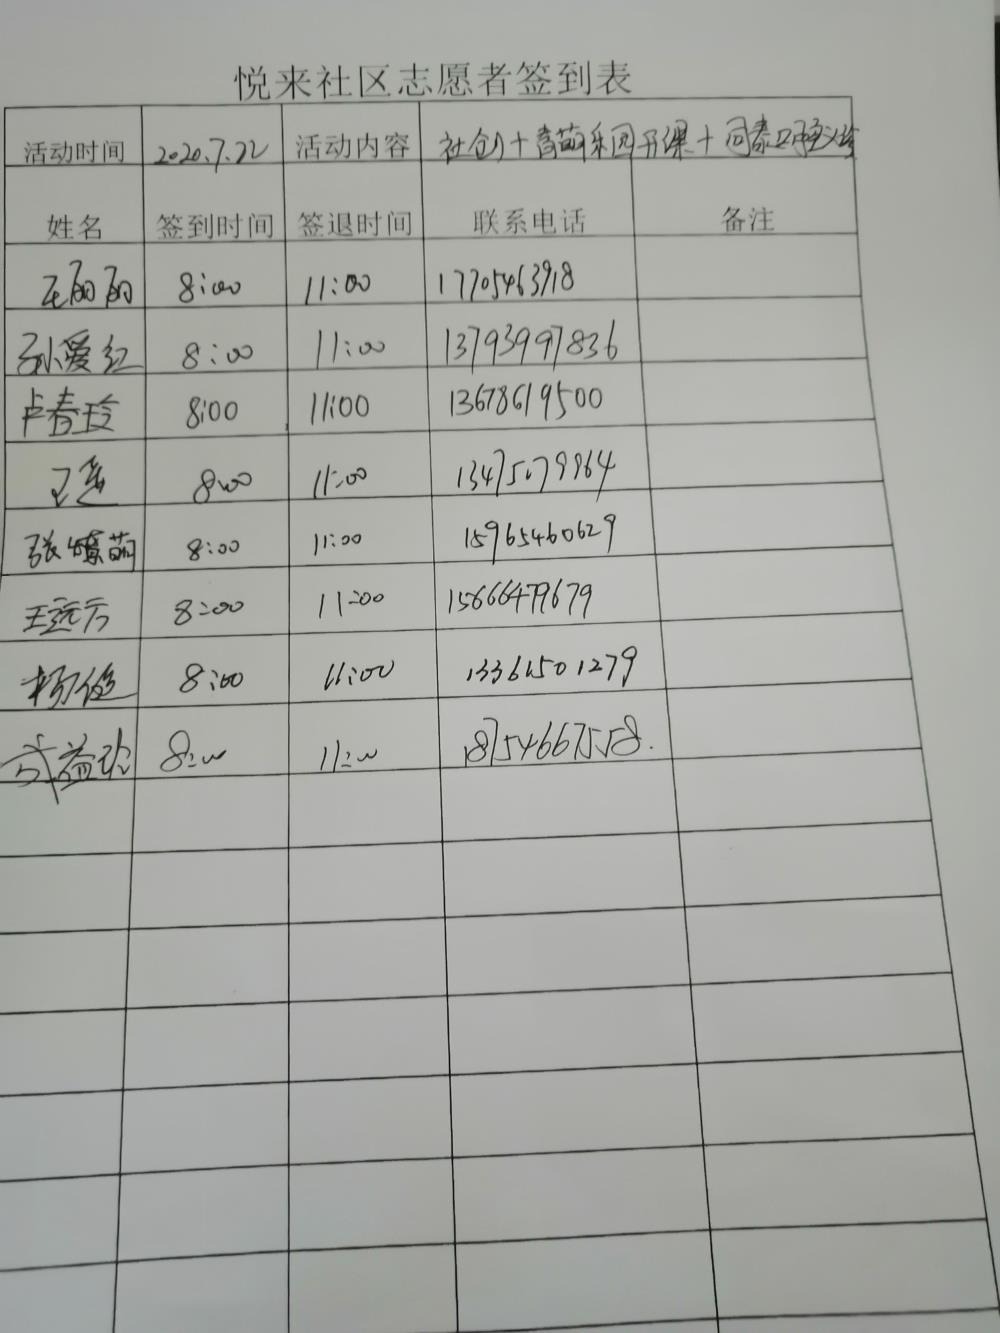 悦来社区志愿者签到表
活动时间 2020.7.22 活动内容 社创+青萌乐园开课+同泰口腔义诊
姓名 签到时间 签退时间 联系电话 备注
王丽丽 8:00 11:00 17705463918
孙爱红 8:00 11:00 13793997836
卢春玲 8:00 11:00 13678619500
8:00 11:00 13475079864
张嫀萌 8:00 11:00 15965460629
王远方 8:00 11:00 15666479679
杨俊 8:00 11:00 13361501279
成益玲 8:00 11:00 18754667558.